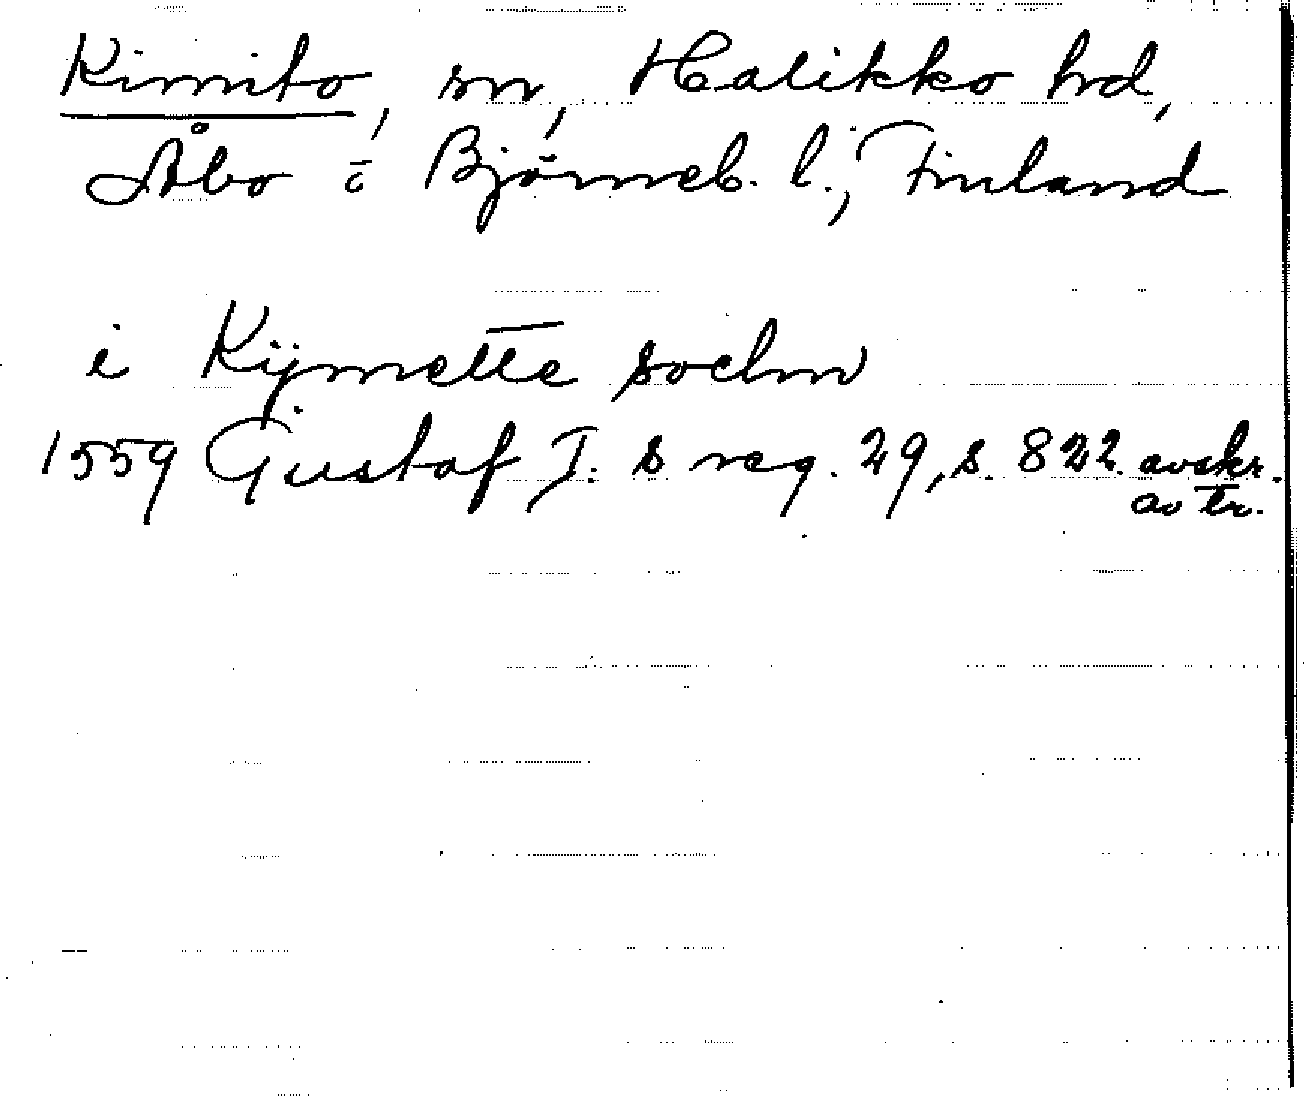 Kimito, sn, Halikko hd,
Åbo o Björneb. l., Finland
i Kijmette sochn
1559 Gustaf I:s reg. 29, s. 822. avskr.
av tr.